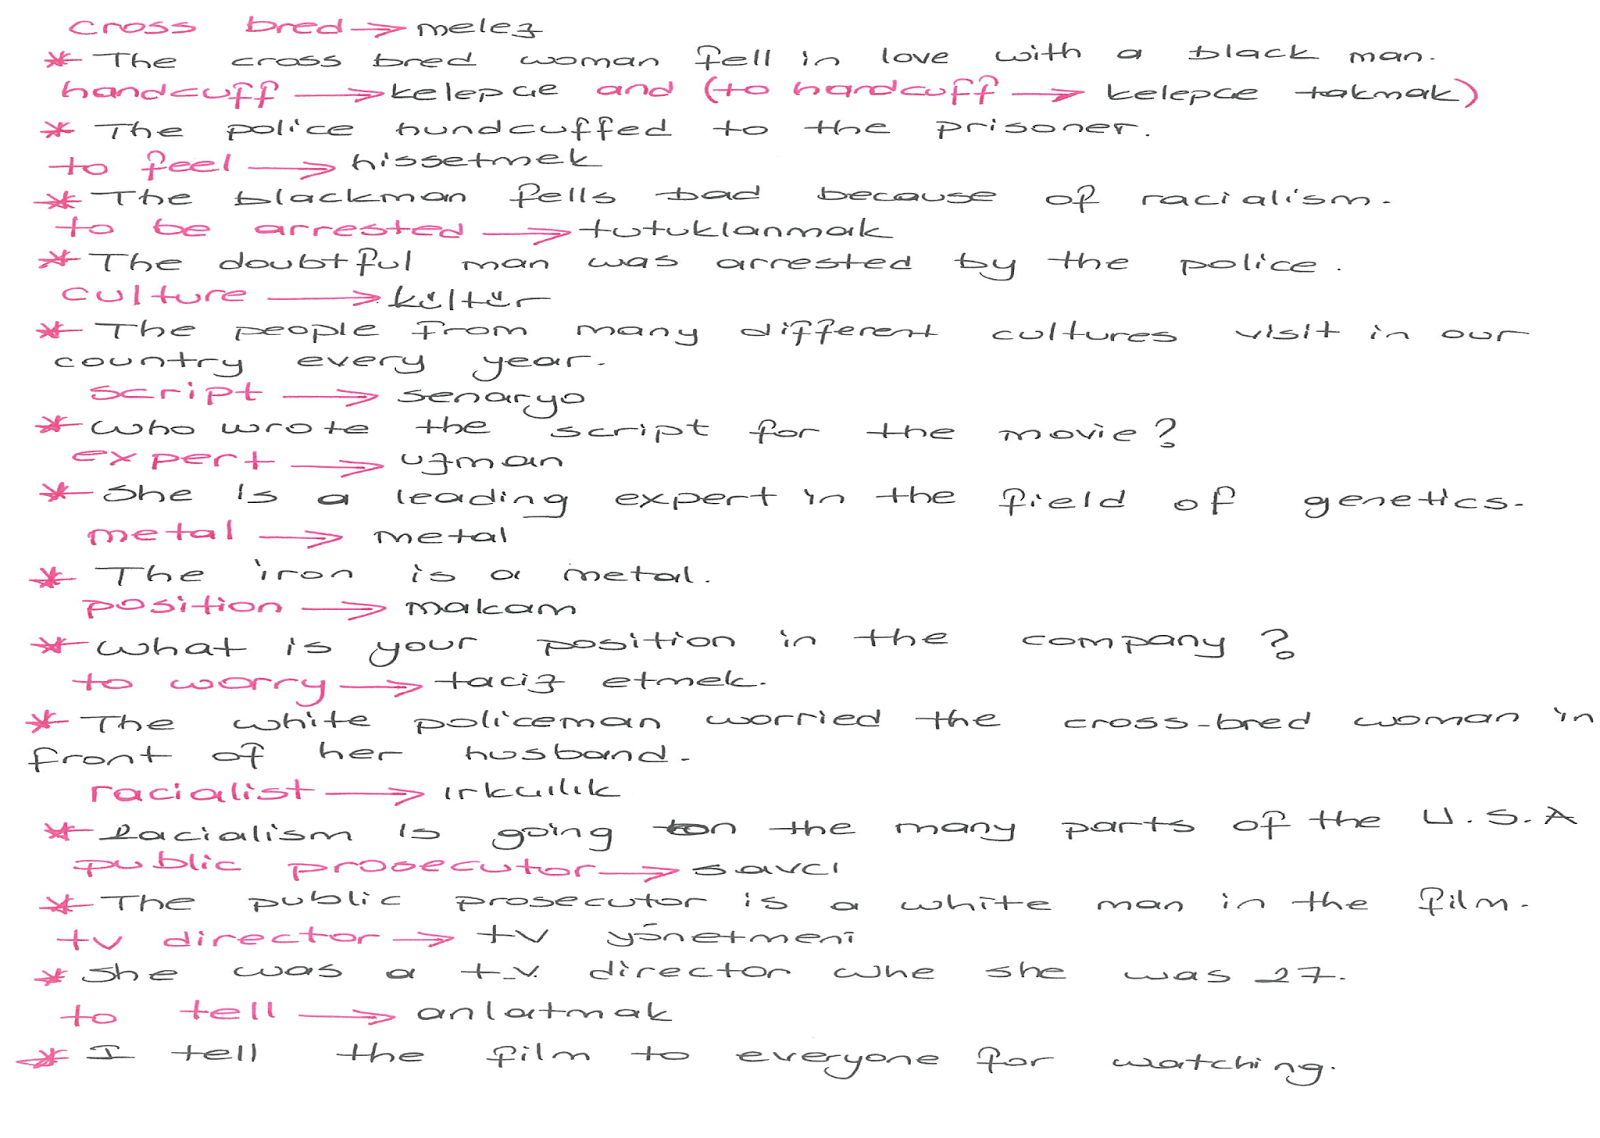 cross bred → melez
* The cross bred woman fell in love with a black man.
handcuff → kelepçe and (to handcuff → kelepçe takmak)
* The police hundcuffed to the prisoner.
to feel → hissetmek
* The blackman fells bad because of racialism.
to be arrested → tutuklanmak
* The doubtful man was arrested by the police.
culture → kültür
* The people from many different cultures visit in our
country every year.
script → senaryo
* who wrote the script for the movie?
expert → uzman
* She is a leading expert in the field of genetics.
metal → metal
* The iron is a metal.
position → makam
* what is your position in the company?
to worry → taciz etmek.
* The white policeman worried the cross-bred woman in
front of her husband.
racialist → ırkçılık
* Racialism is going on the many parts of the U.S.A
public prosecutor → savcı
* The public prosecutor is a white man in the film.
tv director → tv yönetmeni
* She was a t.v. director whe she was 27.
to tell → anlatmak
* I tell the film to everyone for watching.